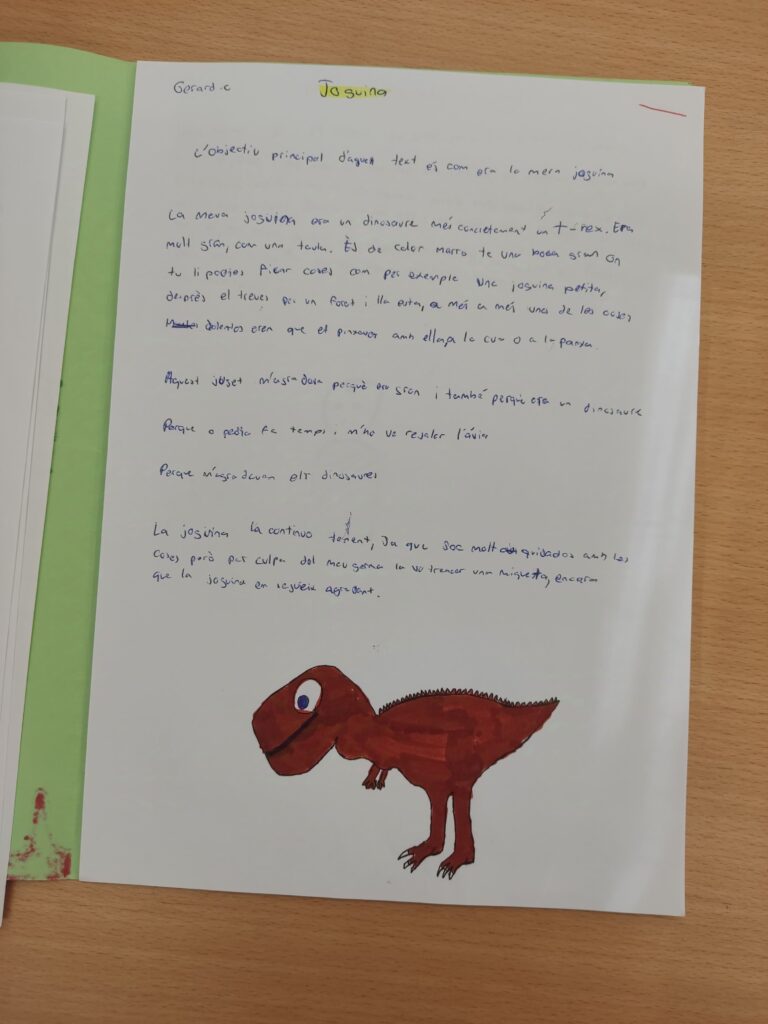 Gerard.c
Joguina
L'objectiu principal d'aquet text és com era la meva joguina
La meva joguina era un dinosaure més concretament un t-rex. Era
molt gran, com una taula. És de color marro te una boca gran on
tu li podies ficar coses com per exemple una joguina petita,
després el treves per un forat i lla esta, a més a més una de les coses
dolentes eren que et pinxaves amb ella per la cua o a la panxa.
Aquest juget m'agradava perquè era gran i també perque era un dinosaure
Porque o pedia fa temps i m'ho va regalar l'ávia
Perque m'agradavan els dinosaures
La joguina la continuo tenent, Ja que soc molt quidados amb les
coses però per culpa del meu germa la va trencar una miqueta, encara
que la joguina em segueix agradant.